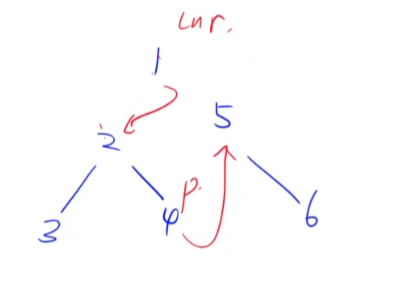 cur.
1
2 5
3 4 p. 6